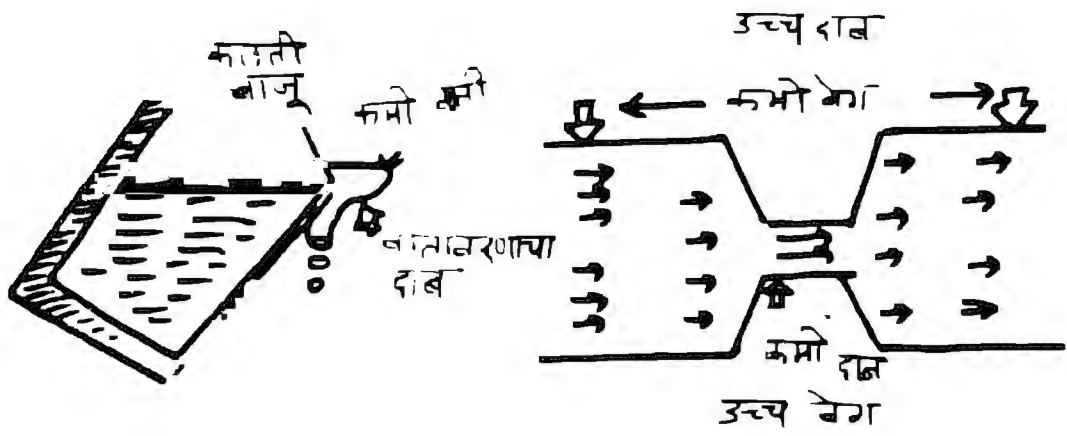 बाजू
कमी
वातावरणाचा
दाब
उच्च दाब
कमी वेग
कमी दाब
उच्च वेग